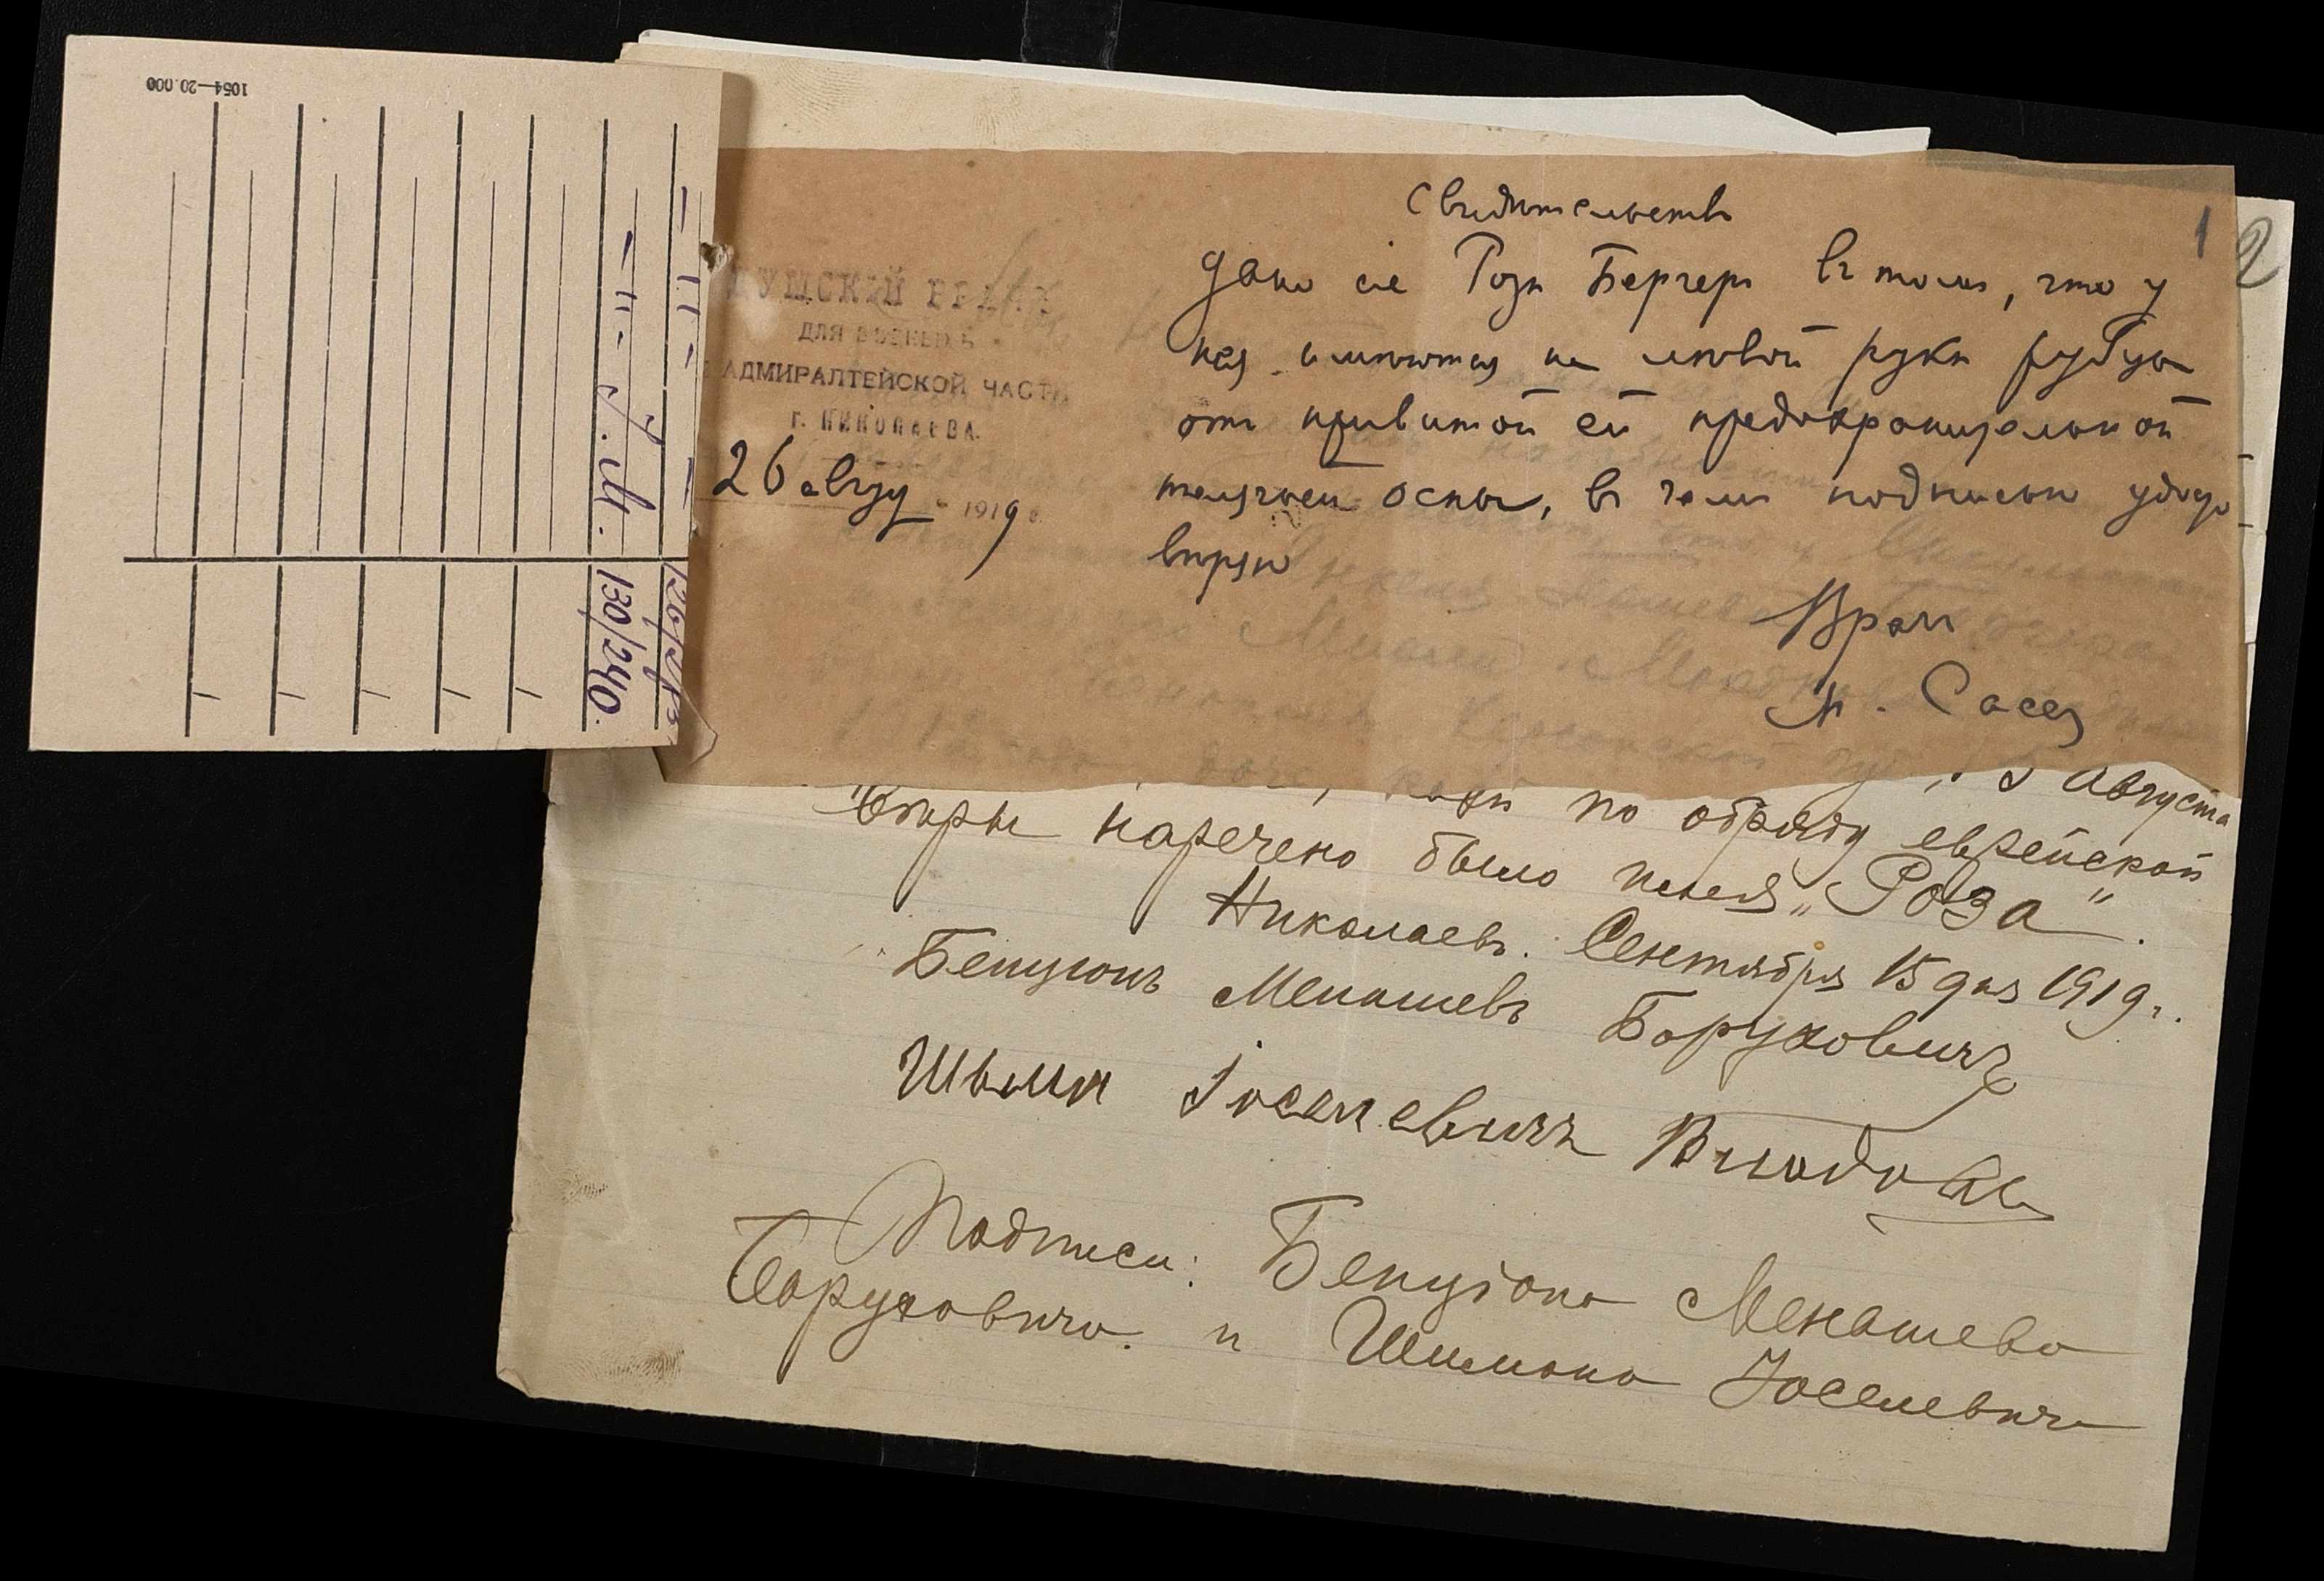 1054—20.000
— " —
— " — Я. М. 130/240.
1
2
ДУМСКІЙ ВРАЧЪ
ДЛЯ БѢДНЫХЪ
АДМИРАЛТЕЙСКОЙ ЧАСТИ
Г. НИКОЛАЕВА.
26 авгу 1919 г.
Свидѣтельство
Дано сіе Розѣ Бергеръ въ томъ, что у
нея имѣются на лѣвой рукѣ рубцы
отъ привитой ей предохранительной
телячьей оспы, въ чемъ подписью удосто
вѣряю
Врачъ
Сасс
Августа
по обряду еврейской
вѣры наречено было имя „Роза".
Николаевъ. Сентября 15 дня 1919 г.
Бенціонъ Менашевъ Боруховичъ
Шымн Іоселевичъ
Подписи: Бенціона Менашева
Боруховича и Шимона Іоселевича